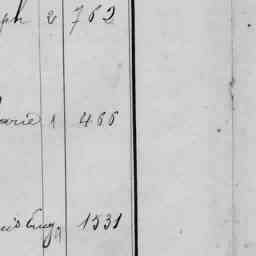 ph 2 762
arie 1 466
is Eug 1531